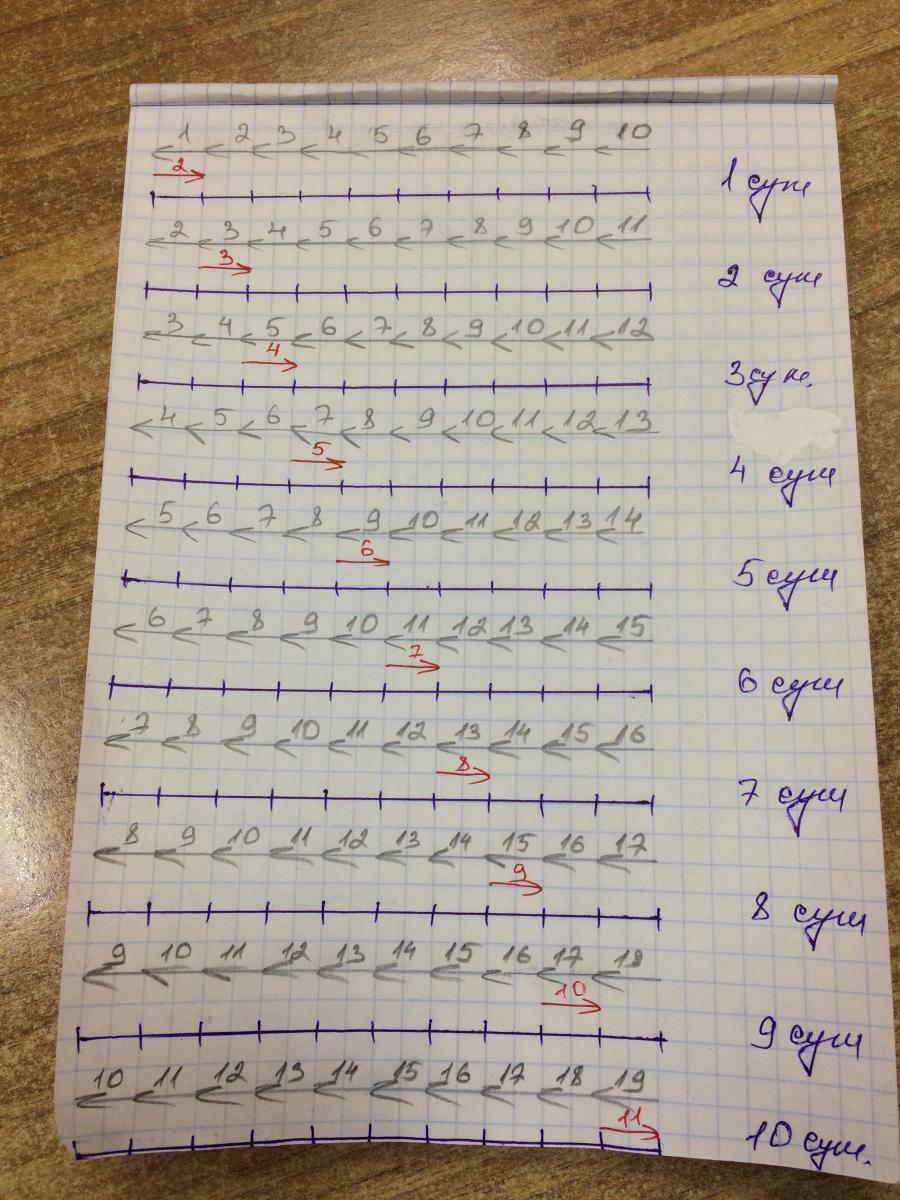 1 2 3 4 5 6 7 8 9 10
2
1 сут
2 3 4 5 6 7 8 9 10 11
3
2 сут
3 4 5 6 7 8 9 10 11 12
4
3 сут.
4 5 6 7 8 9 10 11 12 13
5
4 сут
5 6 7 8 9 10 11 12 13 14
6
5 сут
6 7 8 9 10 11 12 13 14 15
7
6 сут
7 8 9 10 11 12 13 14 15 16
8
7 сут
8 9 10 11 12 13 14 15 16 17
9
8 сут
9 10 11 12 13 14 15 16 17 18
10
9 сут
10 11 12 13 14 15 16 17 18 19
11
10 сут.